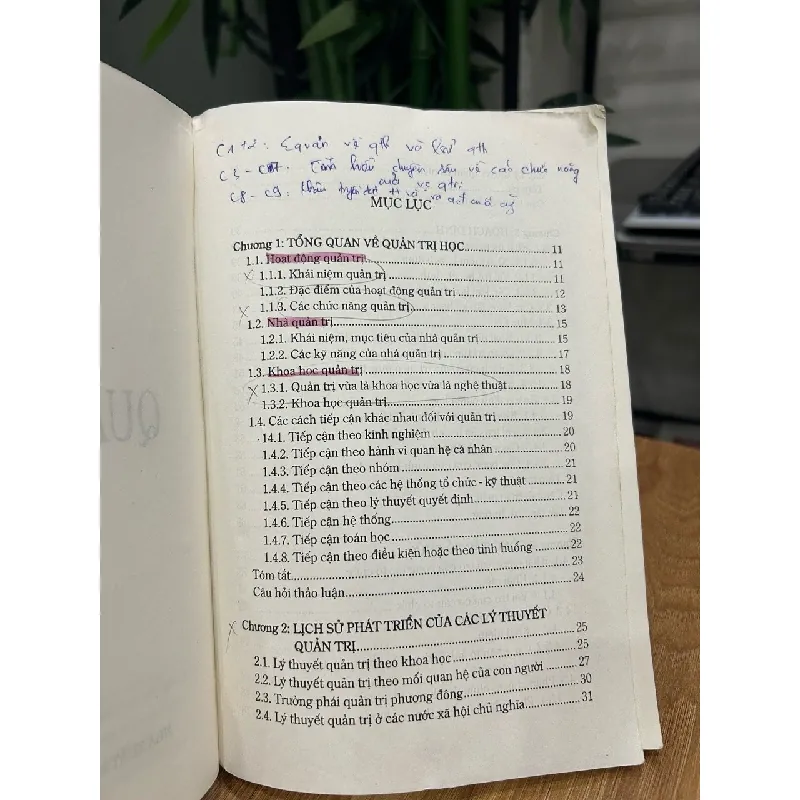 C1+2: Equản về qth và lsử qth
C3 - C7. Tìm hiểu chuyên sâu về các chức năng
của qtrị
C8 - C9:
MỤC LỤC
Chương 1: TỔNG QUAN VỀ QUẢN TRỊ HỌC 11
1.1. Hoạt động quản trị 11
1.1.1. Khái niệm quản trị 11
1.1.2. Đặc điểm của hoạt động quản trị 12
1.1.3. Các chức năng quản trị 13
1.2. Nhà quản trị 15
1.2.1. Khái niệm, mục tiêu của nhà quản trị 15
1.2.2. Các kỹ năng của nhà quản trị 17
1.3. Khoa học quản trị 18
1.3.1. Quản trị vừa là khoa học vừa là nghệ thuật 18
1.3.2. Khoa học quản trị 19
1.4. Các cách tiếp cận khác nhau đối với quản trị 19
14.1. Tiếp cận theo kinh nghiệm 20
1.4.2. Tiếp cận theo hành vi quan hệ cá nhân 20
1.4.3. Tiếp cận theo nhóm 21
1.4.4. Tiếp cận theo các hệ thống tổ chức - kỹ thuật 21
1.4.5. Tiếp cận theo lý thuyết quyết định 21
1.4.6. Tiếp cận hệ thống 22
1.4.7. Tiếp cận toán học 22
1.4.8. Tiếp cận theo điều kiện hoặc theo tình huống 22
Tóm tắt 23
Câu hỏi thảo luận 24
Chương 2: LỊCH SỬ PHÁT TRIỂN CỦA CÁC LÝ THUYẾT
QUẢN TRỊ 25
2.1. Lý thuyết quản trị theo khoa học 25
2.2. Lý thuyết quản trị theo mối quan hệ của con người 27
2.3. Trường phái quản trị phương đông 30
2.4. Lý thuyết quản trị ở các nước xã hội chủ nghĩa 31
QU